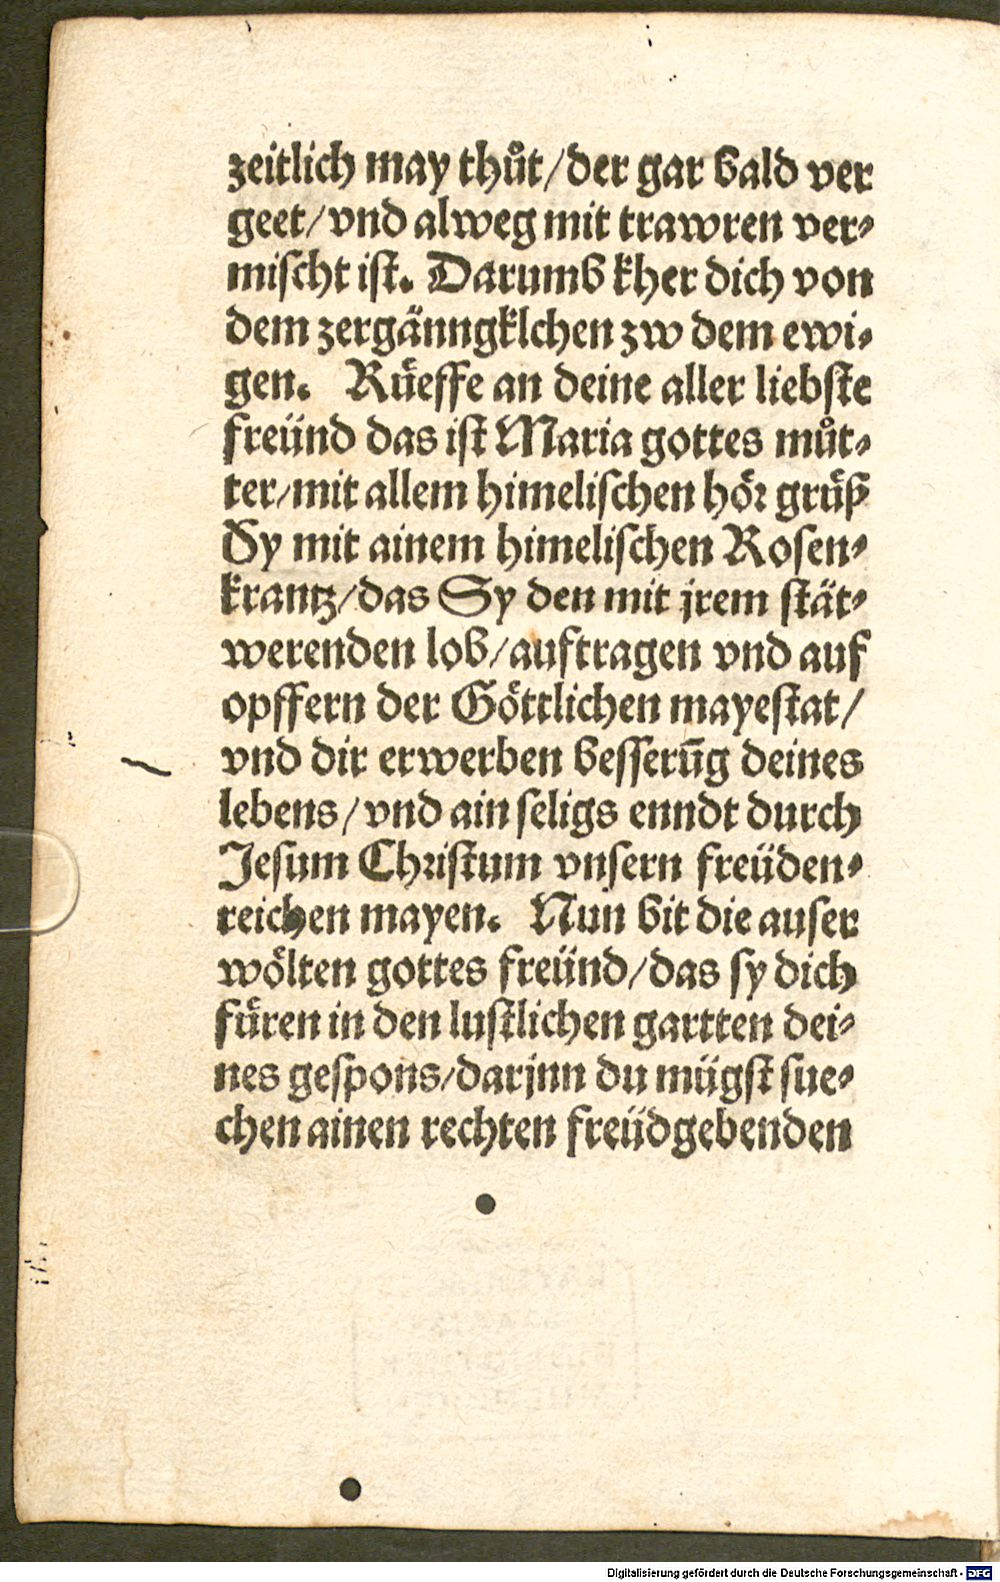 zeitlich may thůt/der gar bald ver
geet/vnd alweg mit trawren ver⸗
mischt ist. Darumb kher dich von
dem zergänngklchen zw dem ewi⸗
gen. Rüeffe an deine aller liebste
freünd das ist Maria gottes můt⸗
ter/mit allem himelischen hör grüß
Sy mit ainem himelischen Rosen⸗
krantz/das Sy den mit jrem stät⸗
werenden lob/auftragen vnd auf
opffern der Göttlichen mayestat/
vnd dir erwerben besserūg deines
lebens/vnd ain seligs enndt durch
Jesum Christum vnsern freüden⸗
reichen mayen. Nun bit die auser
wölten gottes freünd/das sy dich
füren in den lustlichen gartten dei⸗
nes gespons/darjnn du mügst sue⸗
chen ainen rechten freüdgebenden
Digitalisierung gefördert durch die Deutsche Forschungsgemeinschaft - DFG